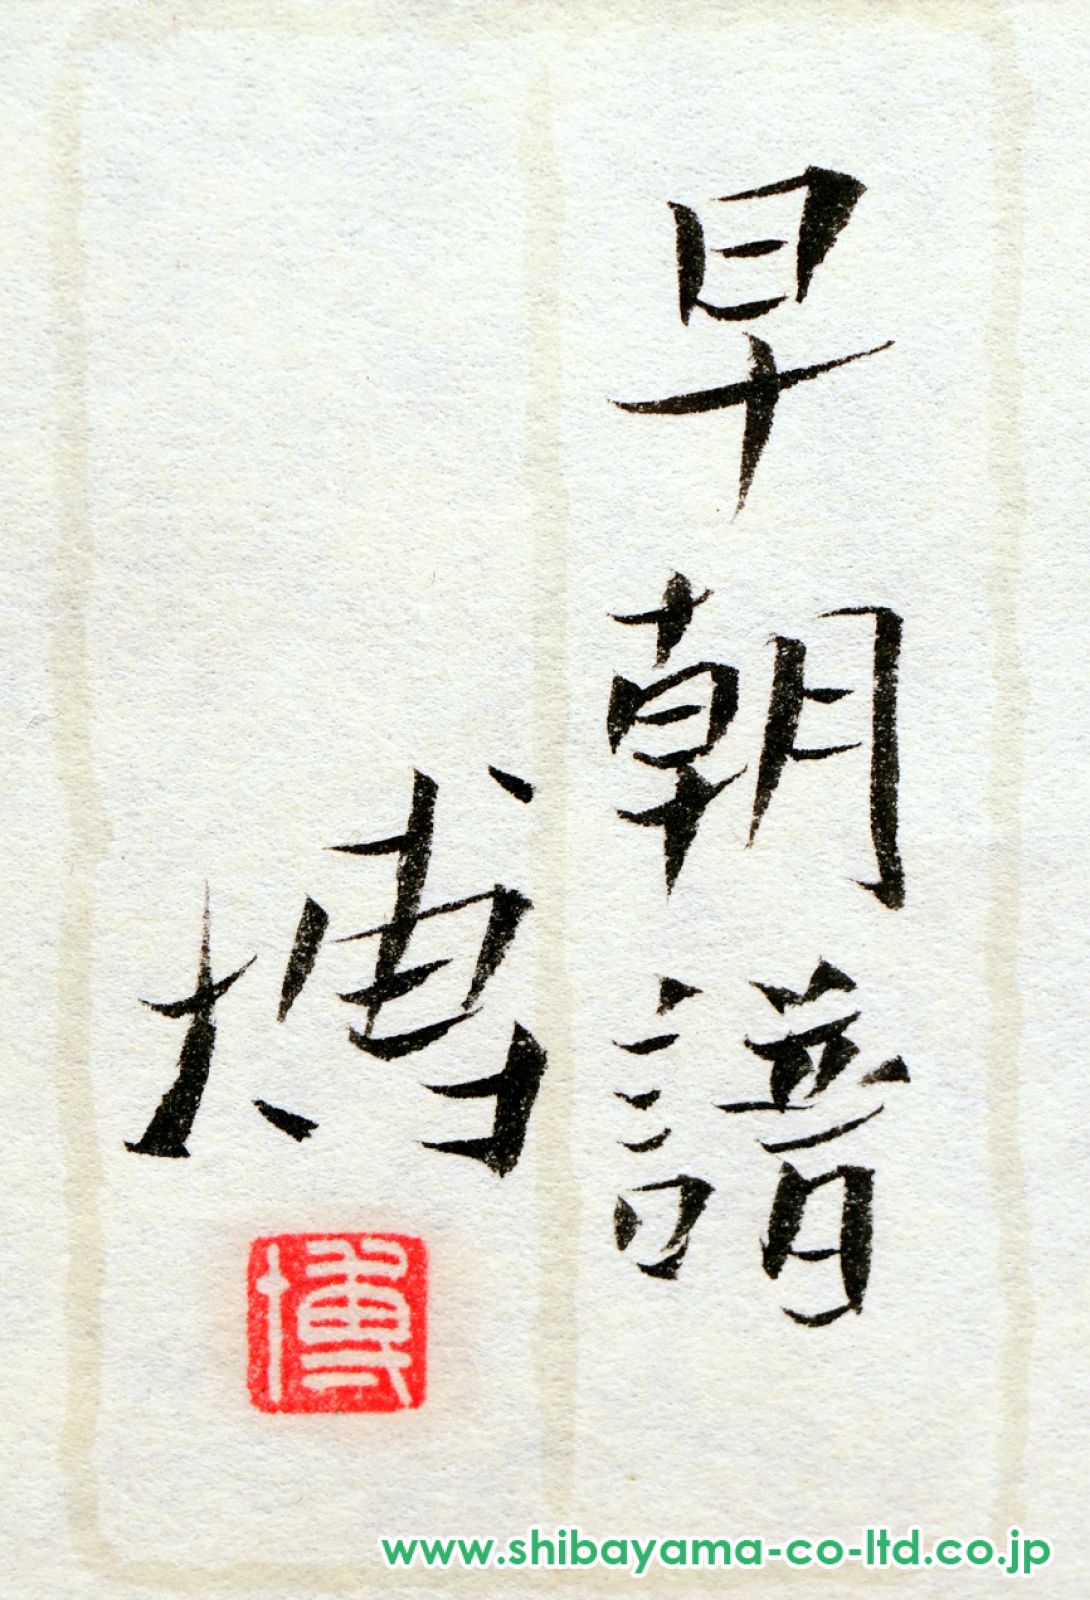 早朝譜
博
博
www.shibayama-co-ltd.co.jp